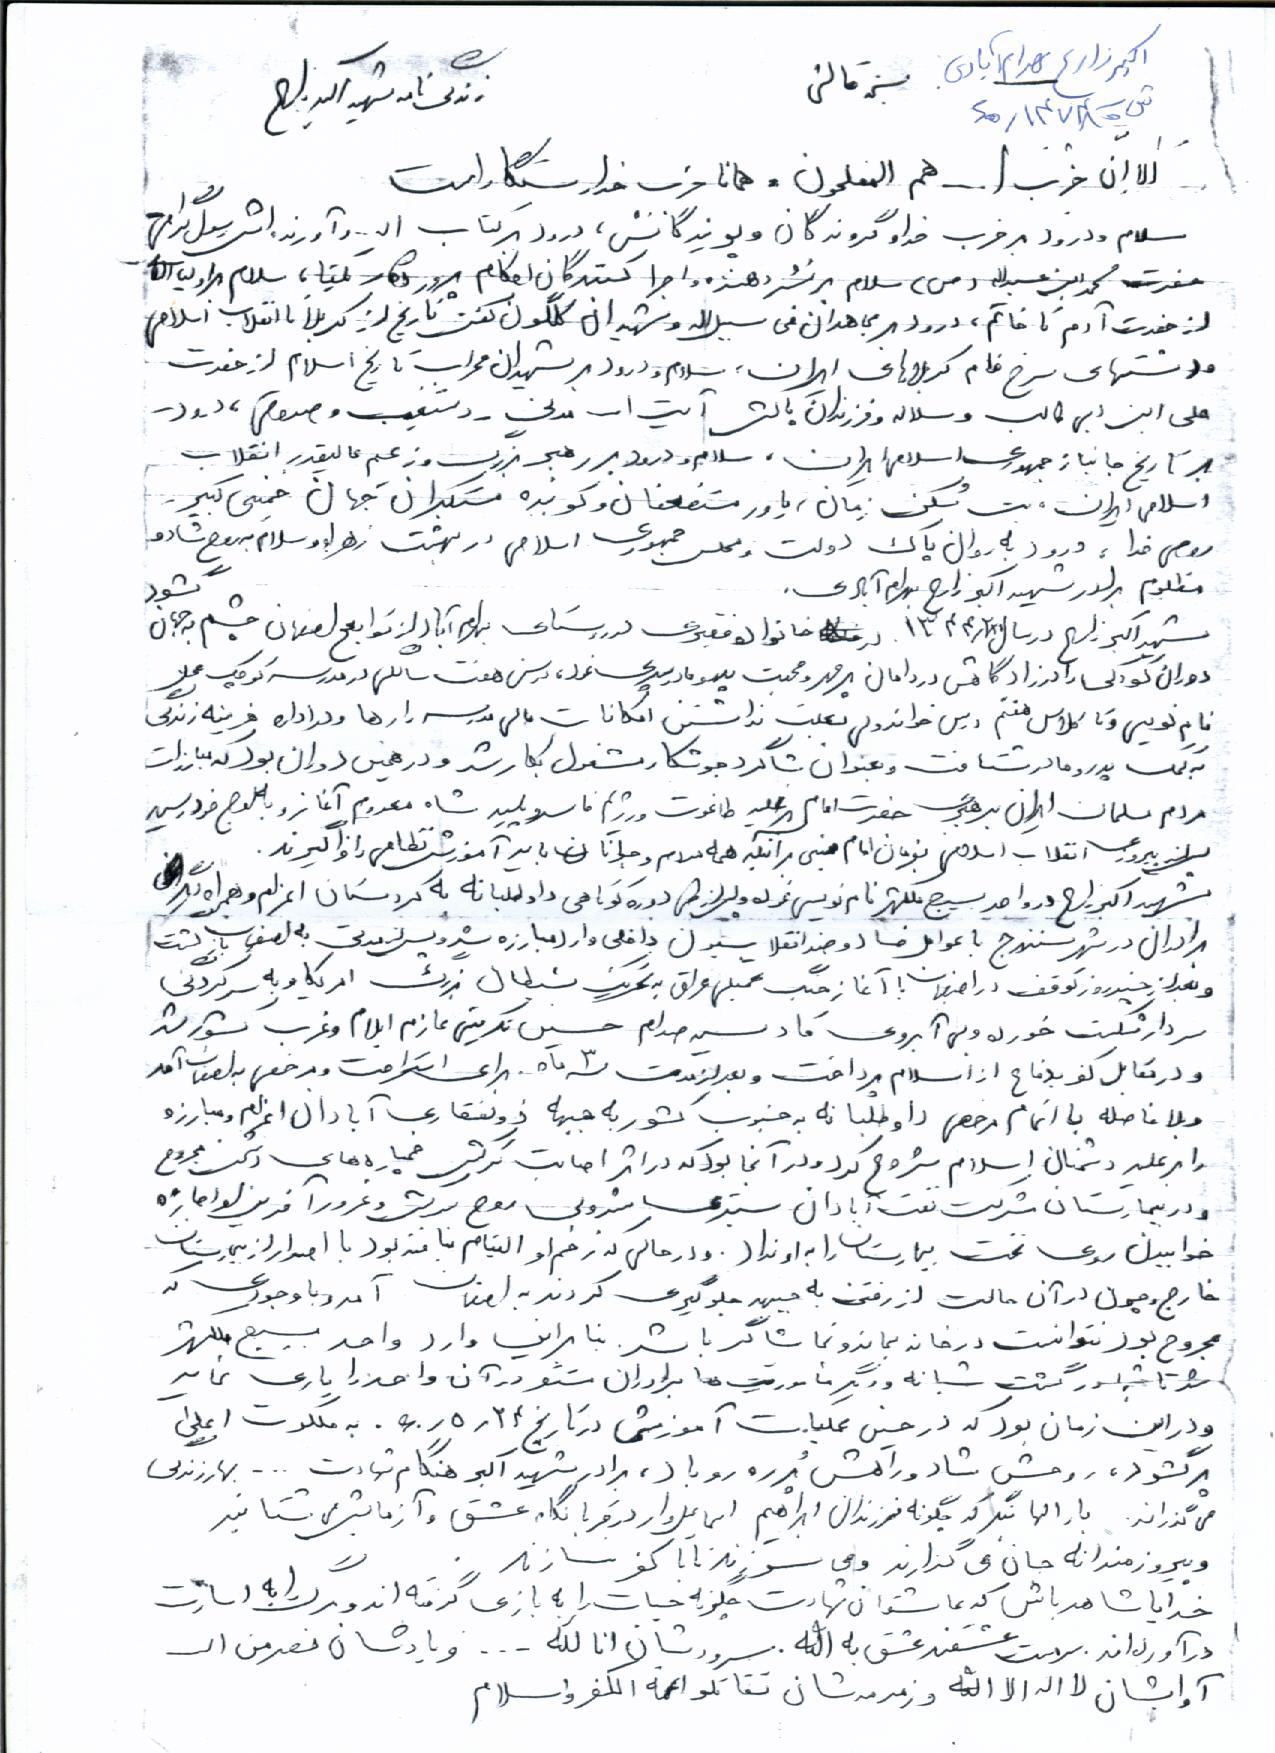 اکبر زارع بهرام آبادی
بسمه تعالی
زندگی نامه شهید اکبر زارع
الا ان حزب ا... هم المفلحون و همانا حزب خدا رستگار است
سلام و درود بر حزب خدا و گروندگان و پویندگانش، درود بر کتاب ا... و آورنده اش رسول گرامی
حضرت محمد ابن عبداله (ص)، سلام بر نشر دهنده و اجرا کنندگان احکام پروردگار یکتا، سلام بر اولیاء
از حضرت آدم تا خاتم، درود بر مجاهدان فی سبیل الله و شهیدان گلگون کفن تاریخ از کربلا تا انقلاب اسلامی
و دشتهای سرخ فام کربلاهای ایران، سلام و درود بر شهیدان محراب تاریخ اسلام از حضرت
علی ابن ابی طالب و سلاله و فرزندان پاکش آیت ا... مدنی - دستغیب و صدوقی، درود
بر تاریخ جانباز جمهوری اسلامی ایران، سلام و درود بر رهبر بزرگ و زعیم عالیقدر انقلاب
اسلامی ایران، بت شکن زمان، یاور مستضعفان و کوبنده مستکبران جهان خمینی کبیر
روح خدا، درود به روان پاک دولت و مجلس جمهوری اسلامی در بهشت زهرا و سلام به روح شاد و
مظلوم برادر شهید اکبر زارع بهرام آبادی.
شهید اکبر زارع در سال ۱۳۴۴ در خانواده فقیری در روستای بهرام آباد از توابع اصفهان چشم به جهان گشود
دوران کودکی را در زادگاهش در دامان پر مهر و محبت پدر و مادر سپری نمود، در سن هفت سالگی در مدرسه کوچک محل
نام نویسی و تا کلاس هفتم درس خواند ولی بعلت نداشتن امکانات مالی مدرسه را رها و در اداره هزینه زندگی
به کمک پدر و مادر شتافت و بعنوان شاگرد جوشکار مشغول بکار شد و در همین دوران بود که مبارزات
مردم مسلمان ایران به رهبری حضرت امام بر علیه طاغوت و رژیم فاسد و پلید شاه معدوم آغاز و به اوج خود رسید
پس از پیروزی انقلاب اسلامی بفرمان امام مبنی بر آنکه همه مردم و جوانان باید آموزش نظامی را فرا گیرند.
شهید اکبر زارع در واحد بسیج ملکشهر نام نویسی نموده و پس از طی دوره کوتاهی داوطلبانه به کردستان اعزام و همراه دیگر
برادران در شهر سنندج با عوامل فساد و ضد انقلاب بیرون و داخلی وارد مبارزه شد و پس از مدتی به اصفهان بازگشت
و بعد از چند روز توقف در اصفهان با آغاز جنگ تحمیلی عراق به تحریک شیطان بزرگ امریکا و به سرکردگی
سردار شکست خورده و بی آبروی قادسیه صدام حسین تکریتی عازم ایلام و غرب کشور شد
و در مقابل کفر بدفاع از اسلام پرداخت و بعد از مدت ۳ ماه برای استراحت و مرخصی به اصفهان آمد
و بلافاصله با اتمام مرخصی داوطلبانه به جنوب کشور به جبهه ذوالفقاری آبادان اعزام و مبارزه
را بر علیه دشمنان اسلام شروع کرد و در آنجا بود که در اثر اصابت ترکش خمپاره های دشمن مجروح
و در بیمارستان شرکت نفت آبادان بستری شد ولی روح سرکش و غرور آفرین او اجازه
خوابیدن روی تخت بیمارستان را به او نداد. و در حالی که زخم او التیام نیافته بود با اصرار از بیمارستان
خارج و چون در آن حالت از رفتن به جبهه جلوگیری کردند به اصفهان آمد و با وجودی که
مجروح بود نتوانست در خانه بماند و تماشاگر باشد. بنابراین وارد واحد بسیج ملکشهر
شد تا شبها در گشت شبانه و دیگر مأموریت ها برادران مستقر در آن واحد را یاری نماید
و در این زمان بود که در حین عملیات آموزشی در تاریخ ۶۰/۵/۲۴ به ملکوت اعلی
پر گشود، روحش شاد و راهش پر رهرو باد، برادر شهید اکبر هنگام شهادت ... بهار زندگی
می گذراند. بار الها بنگر که چگونه فرزندان ابراهیم اسماعیل وار در قربانگاه عشق و آزمایش می شتابند
و پیروزمندانه جان می گذارند و می سوزند تا با کفر نسازند.
خدایا شاهد باش که عاشقان شهادت چگونه حیات را به بازی گرفته اند و مرگ را به اسارت
در آورده اند. سرمست عشقند عشق به الله. سرودشان انا لله ... و یادشان نصر من ا...
آوایشان لا اله الا الله و زمزمه شان قاتلوا ائمة الکفر والسلام